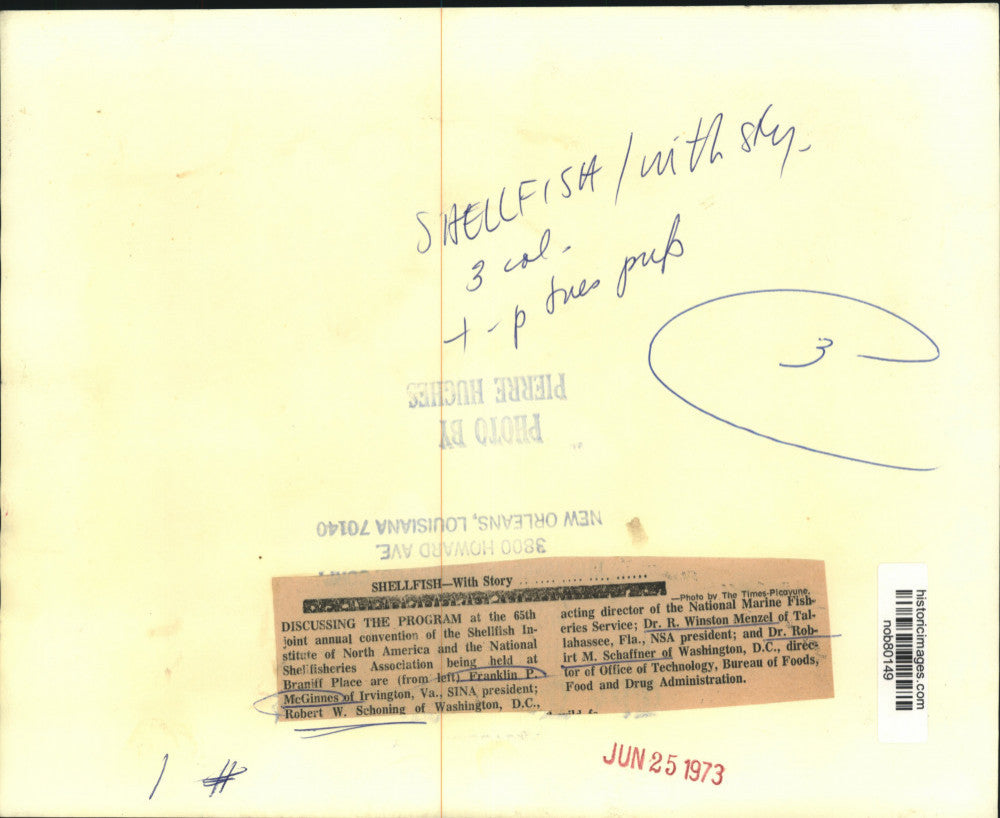 SHELLFISH / with sty.
3 col.
+ - p tues
3
PIERRE HUGHES
PHOTO BY
NEW ORLEANS, LOUISIANA 70140
3800 HOWARD AVE.
SHELLFISH—With Story .. ..... .... .... ......
—Photo by The Times-Picayune.
DISCUSSING THE PROGRAM at the 65th
joint annual convention of the Shellfish In-
stitute of North America and the National
Shellfisheries Association being held at
Braniff Place are (from left) Franklin P.
McGinnes of Irvington, Va., SINA president;
Robert W. Schoning of Washington, D.C.,
acting director of the National Marine Fish-
eries Service; Dr. R. Winston Menzel of Tal-
lahassee, Fla., NSA president; and Dr. Rob-
irt M. Schaffner of Washington, D.C., direc-
tor of Office of Technology, Bureau of Foods,
Food and Drug Administration.
historicimages.com
nob80149
JUN 25 1973
1 #